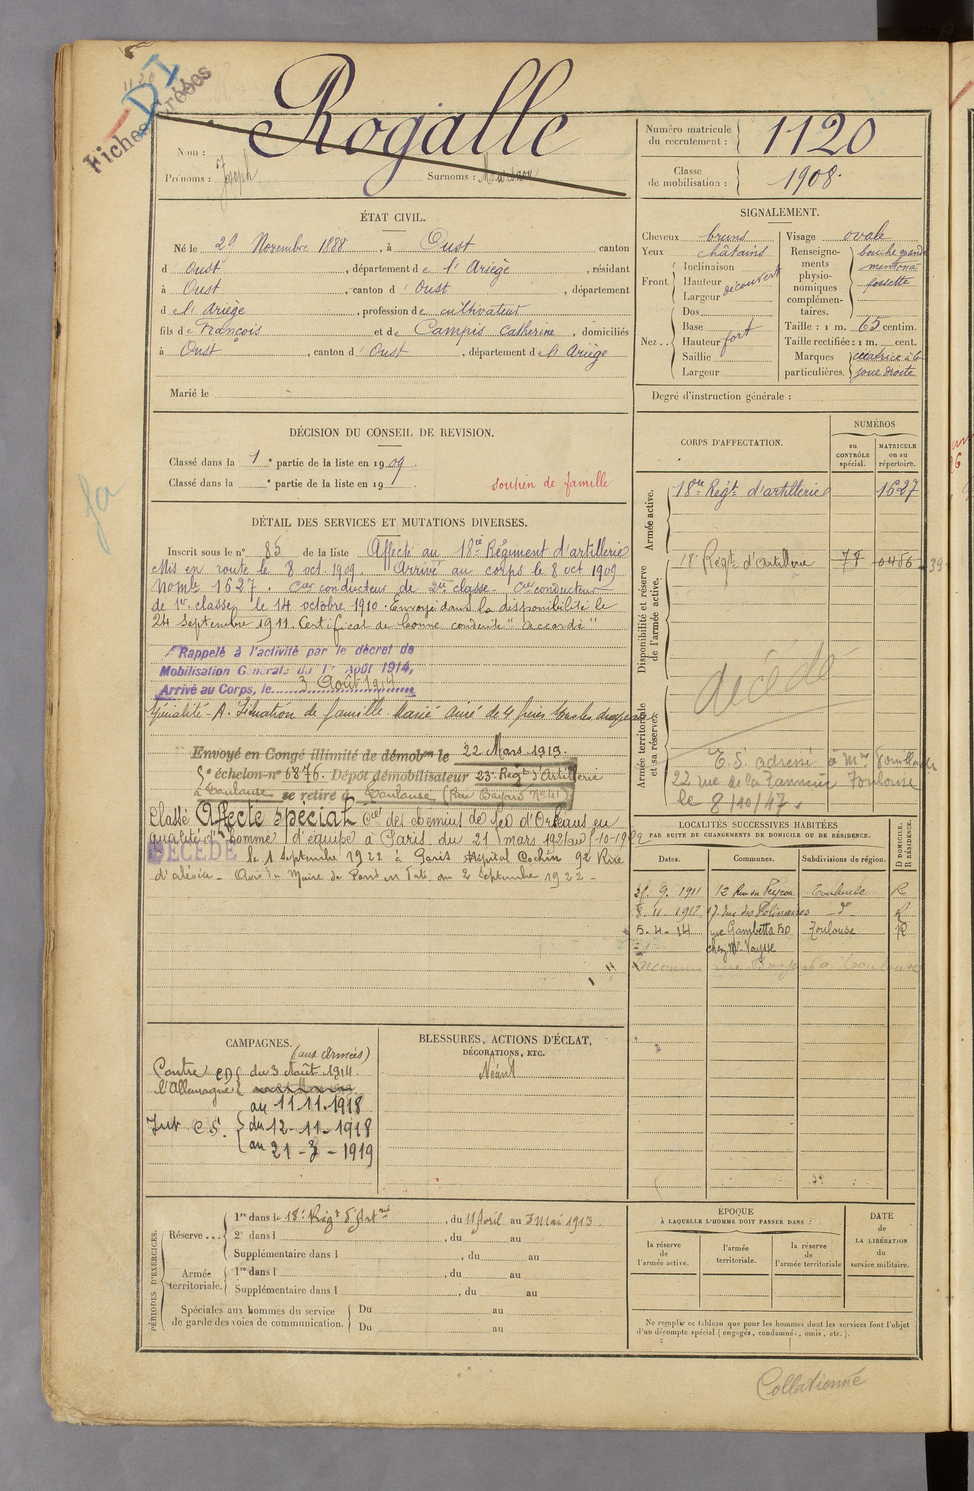 DI
Fiches créées
Rogalle
Nom :
Prénoms : Joseph Surnoms :
Numéro matricule du recrutement : 1120
Classe de mobilisation : 1908.
ÉTAT CIVIL.
Né le 29 Novembre 1888, à Oust canton
d Oust, département de l'Ariège, résidant
à Oust, canton d' Oust, département
de l'Ariège, profession de cultivateur
fils de François et de Campis Catherine, domiciliés
à Oust, canton d' Oust, département de l'Ariège
Marié le
SIGNALEMENT.
Cheveux bruns
Yeux châtains
Front. Inclinaison
Hauteur découvert
Largeur
Nez .. Dos
Base
Hauteur fort
Saillie
Largeur
Visage ovale
Renseignements physionomiques complémentaires. bouche grande
menton à
fossette
Taille : 1 m. 65 centim.
Taille rectifiée : 1 m. cent.
Marques particulières. cicatrice à la
joue droite
Degré d'instruction générale :
DÉCISION DU CONSEIL DE REVISION.
Classé dans la 1e partie de la liste en 1909.
Classé dans la e partie de la liste en 19
soutien de famille
DÉTAIL DES SERVICES ET MUTATIONS DIVERSES.
Inscrit sous le n° 85 de la liste Affecté au 18e Régiment d'artillerie
Mis en route le 8 oct. 1909. Arrivé au corps le 8 oct 1909
1627. conducteur de 2me classe. conducteur
de 1re classe le 14 octobre 1910. Envoyé dans la disponibilité le
24 Septembre 1911. Certificat de bonne conduite "accordé"
Rappelé à l'activité par le décret de
Mobilisation Générale du 1er Août 1914,
Arrivé au Corps, le 3 Août 1914
Situation de famille Marié ainé de 4 frères
Envoyé en Congé illimité de démobon le 22 Mars 1919.
échelon n° 6876. Dépôt démobilisateur 23e Regt d'Artillerie
à Toulouse se retire à Toulouse (Rue Bayard N°41)
Classé Affecté spécial Cie des chemins de fer d'Orléans en
qualité d'homme d'équipe à Paris du 21 mars 1921 au 1-10-1922
DÉCÉDÉ le 1 Septembre 1922 à Paris Hopital Cochin
d'alésia - Avis du Maire de Paris en date du 2 Septembre 1922 -
CORPS D'AFFECTATION.
NUMÉROS
au CONTRÔLE spécial.
MATRICULE ou au répertoire.
Armée active.
18me Regt d'artillerie 1627
Disponibilité et réserve de l'armée active.
18e Regt d'Artillerie 78 0456
décédé
Armée territoriale et sa réserve.
E.S. adressé à Mme
22 rue de la Toulouse
le 8/10/47
LOCALITÉS SUCCESSIVES HABITÉES
PAR SUITE DE CHANGEMENTS DE DOMICILE OU DE RÉSIDENCE.
Dates. Communes. Subdivisions de région. D DOMICILE. R RÉSIDENCE.
9. 1911 12 Rue du Peyrou Toulouse R
8. 11. 1912 17 rue des Polinaires d° R
5. 4. 14 rue Gambetta 50 Toulouse R
chez Mr Vaysse
CAMPAGNES.
(aux Armées)
Contre l'Allemagne CD du 3 Août 1914
au 11.11.1918
Int CS. du 12-11-1918
au 21-3-1919
BLESSURES, ACTIONS D'ÉCLAT,
DÉCORATIONS, ETC.
Néant
PÉRIODES D'EXERCICES.
Réserve ... 1re dans le 18e Régt d'Artie, du 11 Avril au 3 Mai 1913.
2e dans l , du au
Supplémentaire dans l , du au
Armée territoriale. 1re dans l , du au
Supplémentaire dans l , du au
Spéciales aux hommes du service
de garde des voies de communication.
Du au
Du au
ÉPOQUE
À LAQUELLE L'HOMME DOIT PASSER DANS :
la réserve de l'armée active.
l'armée territoriale.
la réserve de l'armée territoriale
DATE de LA LIBÉRATION du service militaire.
Ne remplir ce tableau que pour les hommes dont les services font l'objet
d'un décompte spécial (engagés, condamnés, omis, etc.).
Collationné